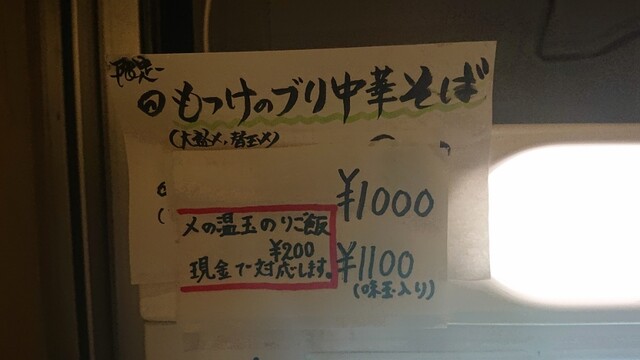 限定
もっけのブリ中華そば
(大盛〆、替玉〆)
¥1000
〆の温玉のりご飯
¥200
現金で対応します。
¥1100
(味玉入り)